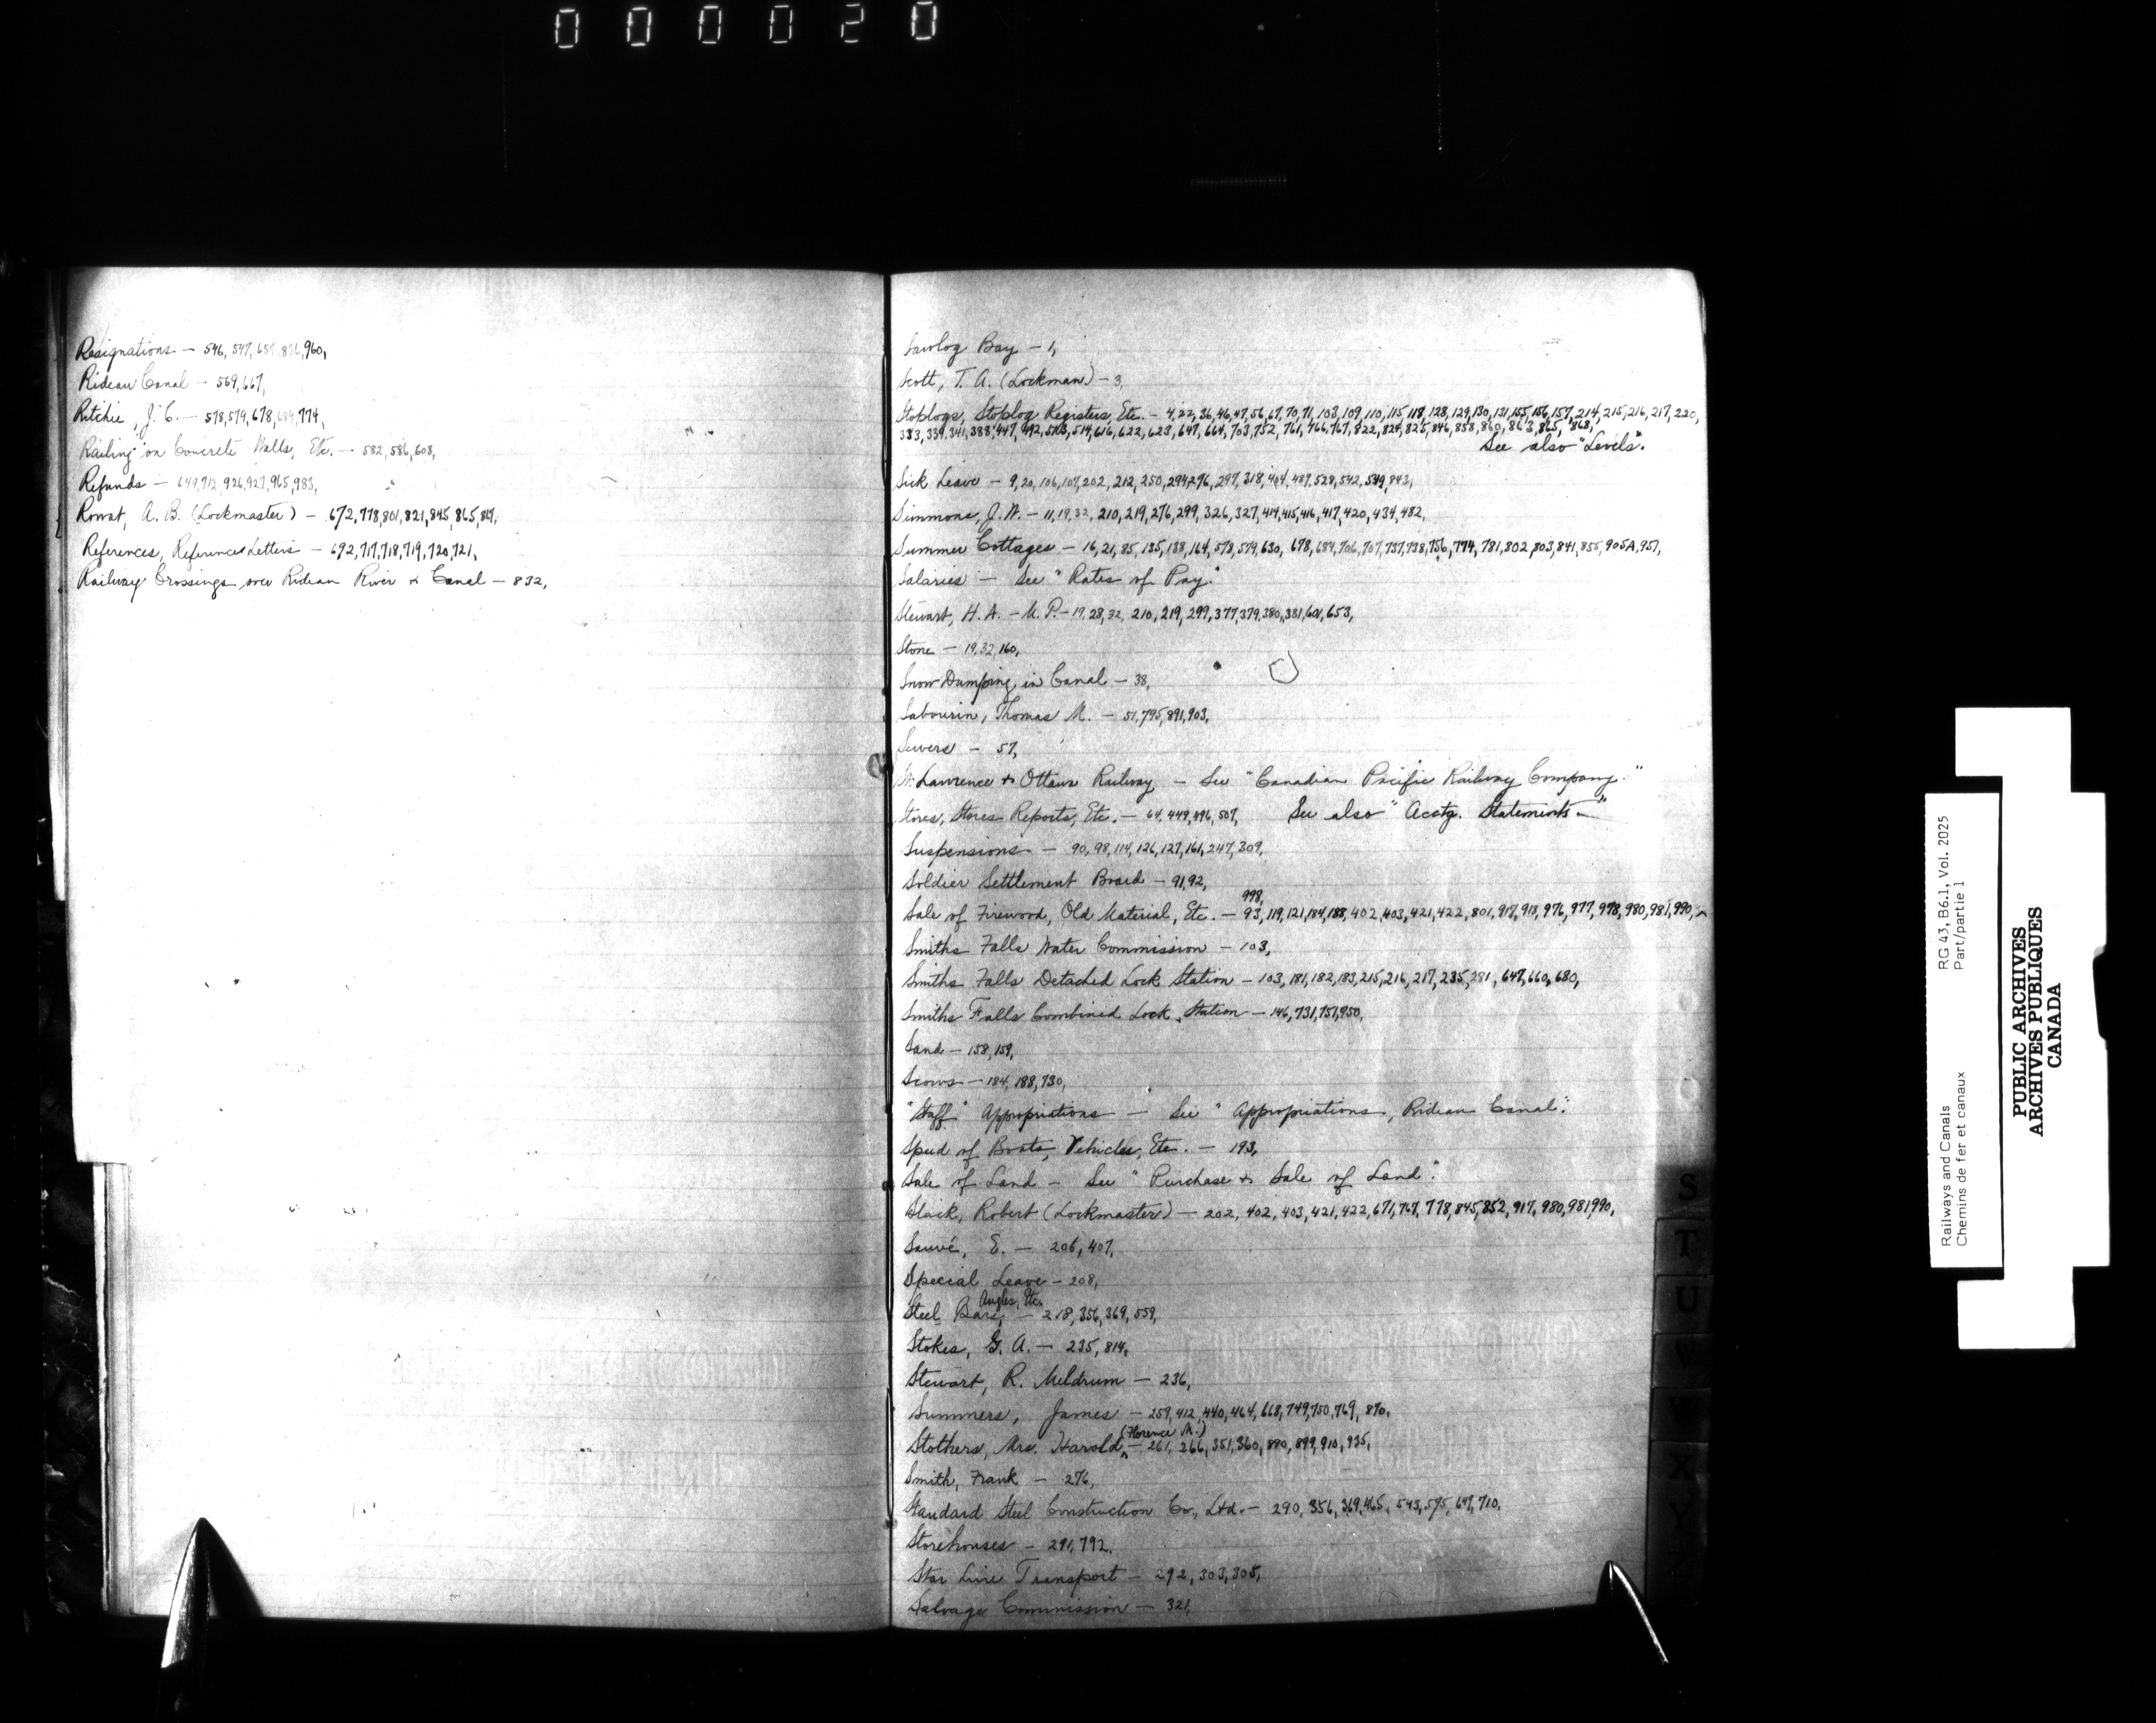 000020
Resignations — 546, 547, 657, 836, 960,
Rideau Canal — 569, 667,
Ritchie, J. C. — 578, 579, 678, 684, 774,
Railing on Concrete Walls, Etc. — 582, 586, 608,
Refunds — 649, 912, 926, 927, 965, 983,
Rowat, A. B. (Lockmaster) — 672, 778, 801, 821, 845, 865, 867,
References, Reference Letters — 692, 717, 718, 719, 720, 721,
Railway Crossings over Rideau River & Canal — 832,
Sawlog Bay — 1,
Scott, T. A. (Lockman) — 3,
Stoplogs, Stoplog Registers, Etc. — 4, 22, 36, 46, 47, 56, 67, 70, 71, 103, 109, 110, 115, 118, 128, 129, 130, 131, 155, 156, 157, 214, 215, 216, 217, 220,
333, 339, 341, 388, 447, 492, 503, 514, 616, 622, 623, 647, 664, 703, 752, 761, 766, 767, 822, 824, 825, 846, 858, 860, 863, 865, 868,
See also "Levels".
Sick Leave — 9, 20, 106, 107, 202, 212, 250, 294, 296, 297, 318, 404, 487, 528, 542, 549, 843,
Simmons, J. W. — 11, 19, 32, 210, 219, 276, 299, 326, 327, 414, 415, 416, 417, 420, 434, 482,
Summer Cottages — 16, 21, 85, 135, 138, 164, 578, 579, 630, 678, 684, 706, 707, 737, 738, 756, 774, 781, 802, 803, 841, 855, 905A, 957,
Salaries — See "Rates of Pay."
Stewart, H. A. — M. P. — 19, 28, 32, 210, 219, 299, 377, 379, 380, 381, 601, 653,
Stone — 19, 32, 160,
Snow Dumping in Canal — 38,
Sabourin, Thomas M. — 51, 795, 891, 903,
Sewers — 57,
St. Lawrence & Ottawa Railway — See "Canadian Pacific Railway Company."
Stores, Stores Reports, Etc. — 64, 449, 496, 507, See also "Acctg. Statements"
Suspensions — 90, 98, 114, 126, 127, 161, 247, 309,
Soldier Settlement Board — 91, 92,
998,
Sale of Firewood, Old Material, Etc. — 93, 119, 121, 184, 188, 402, 403, 421, 422, 801, 917, 918, 976, 977, 978, 980, 981, 990,
Smiths Falls Water Commission — 103,
Smiths Falls Detached Lock Station — 103, 181, 182, 183, 215, 216, 217, 235, 281, 647, 660, 680,
Smiths Falls Combined Lock Station — 146, 731, 757, 950,
Sand — 158, 159,
Scows — 184, 188, 730,
"Staff" Appropriations — See "Appropriations, Rideau Canal."
Speed of Boats, Vehicles, Etc. — 193,
Sale of Land — See "Purchase & Sale of Land".
Slack, Robert (Lockmaster) — 202, 402, 403, 421, 422, 671, 767, 778, 845, 852, 917, 980, 981, 990,
Sauvé, E. — 206, 407,
Special Leave — 208,
Angles, Etc.
Steel Bars, — 218, 356, 369, 559,
Stokes, G. A. — 235, 814,
Stewart, R. Meldrum — 236,
Summers, James — 259, 412, 440, 464, 668, 749, 750, 769, 870,
(Florence M.)
Stothers, Mrs. Harold — 261, 266, 351, 360, 890, 899, 910, 935,
Smith, Frank — 276,
Standard Steel Construction Co., Ltd. — 290, 356, 369, 465, 543, 595, 649, 710,
Storehouses — 291, 792,
Star Line Transport — 292, 303, 305,
Salvage Commission — 321,
S
T
U
V
W
X
Y
Z
Railways and Canals
Chemins de fer et canaux
RG 43, B6.1, Vol. 2025
Part/partie 1
PUBLIC ARCHIVES
ARCHIVES PUBLIQUES
CANADA